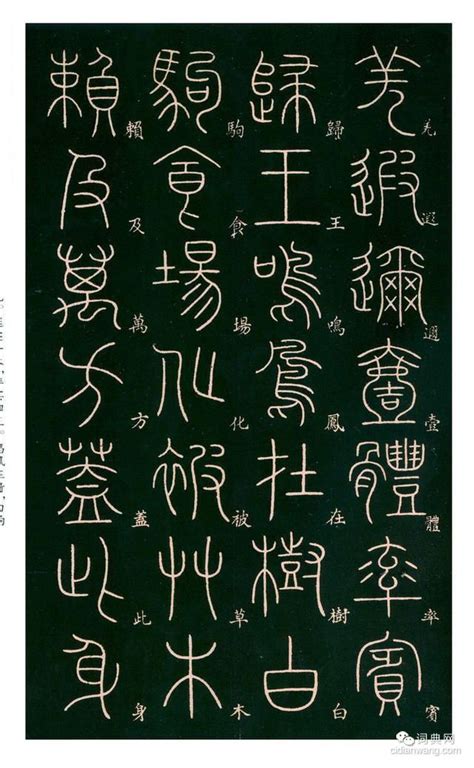 羌遐邇壹體率賓
羌遐邇壹體率賓
歸王鳴鳳在樹白
歸王鳴鳳在樹白
駒食場化被草木
駒食場化被草木
賴及萬方蓋此身
賴及萬方蓋此身
词典网
cidianwang.com